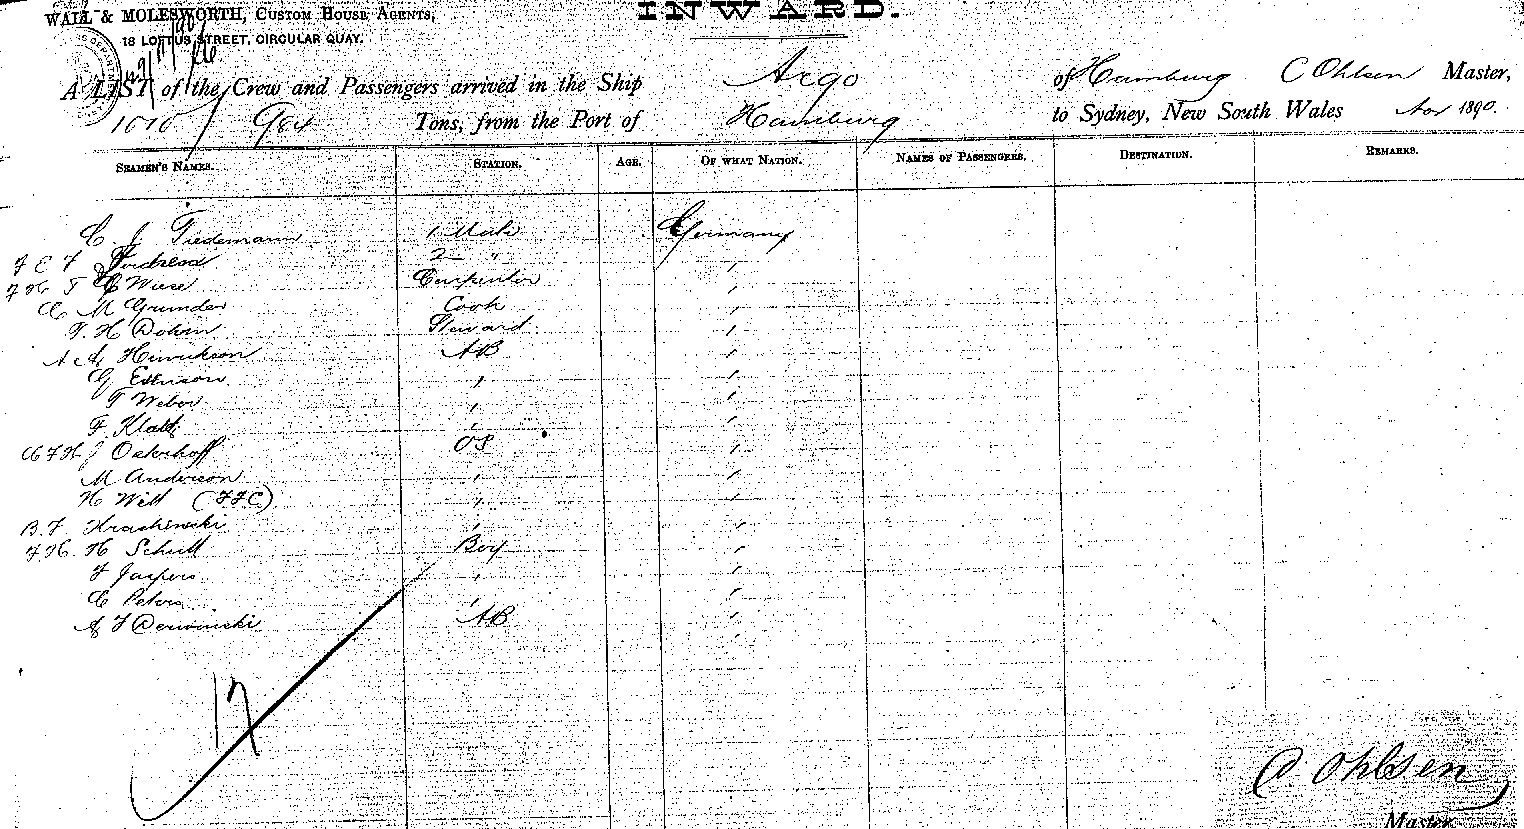 INWARD.
WALL & MOLESWORTH, CUSTOM HOUSE AGENTS,
18 LOFTUS STREET, CIRCULAR QUAY.
A LIST of the Crew and Passengers arrived in the Ship Argo of Hamburg C Ohlsen Master,
1010 / 984 Tons, from the Port of Hamburg to Sydney, New South Wales Nov 1890.
SEAMEN'S NAMES. STATION. AGE. OF WHAT NATION. NAMES OF PASSENGERS. DESTINATION. REMARKS.
C J Tiedemann 1 Mate Germany
F E F 2 "
F H T C Wiese Carpenter "
C M Grunder Cook "
F. H Dohrn Steward "
A A Hinrichson AB "
G " "
T Weber " "
F Klatt " "
J Osterhoff OS "
M Anderson " "
H Witt (FFC) " "
B. F. Kraschinski " "
F H. H Schutt Boy "
F Jaspers " "
C Peters " "
A F Derwinski AB "
17
C. Ohlsen
Master